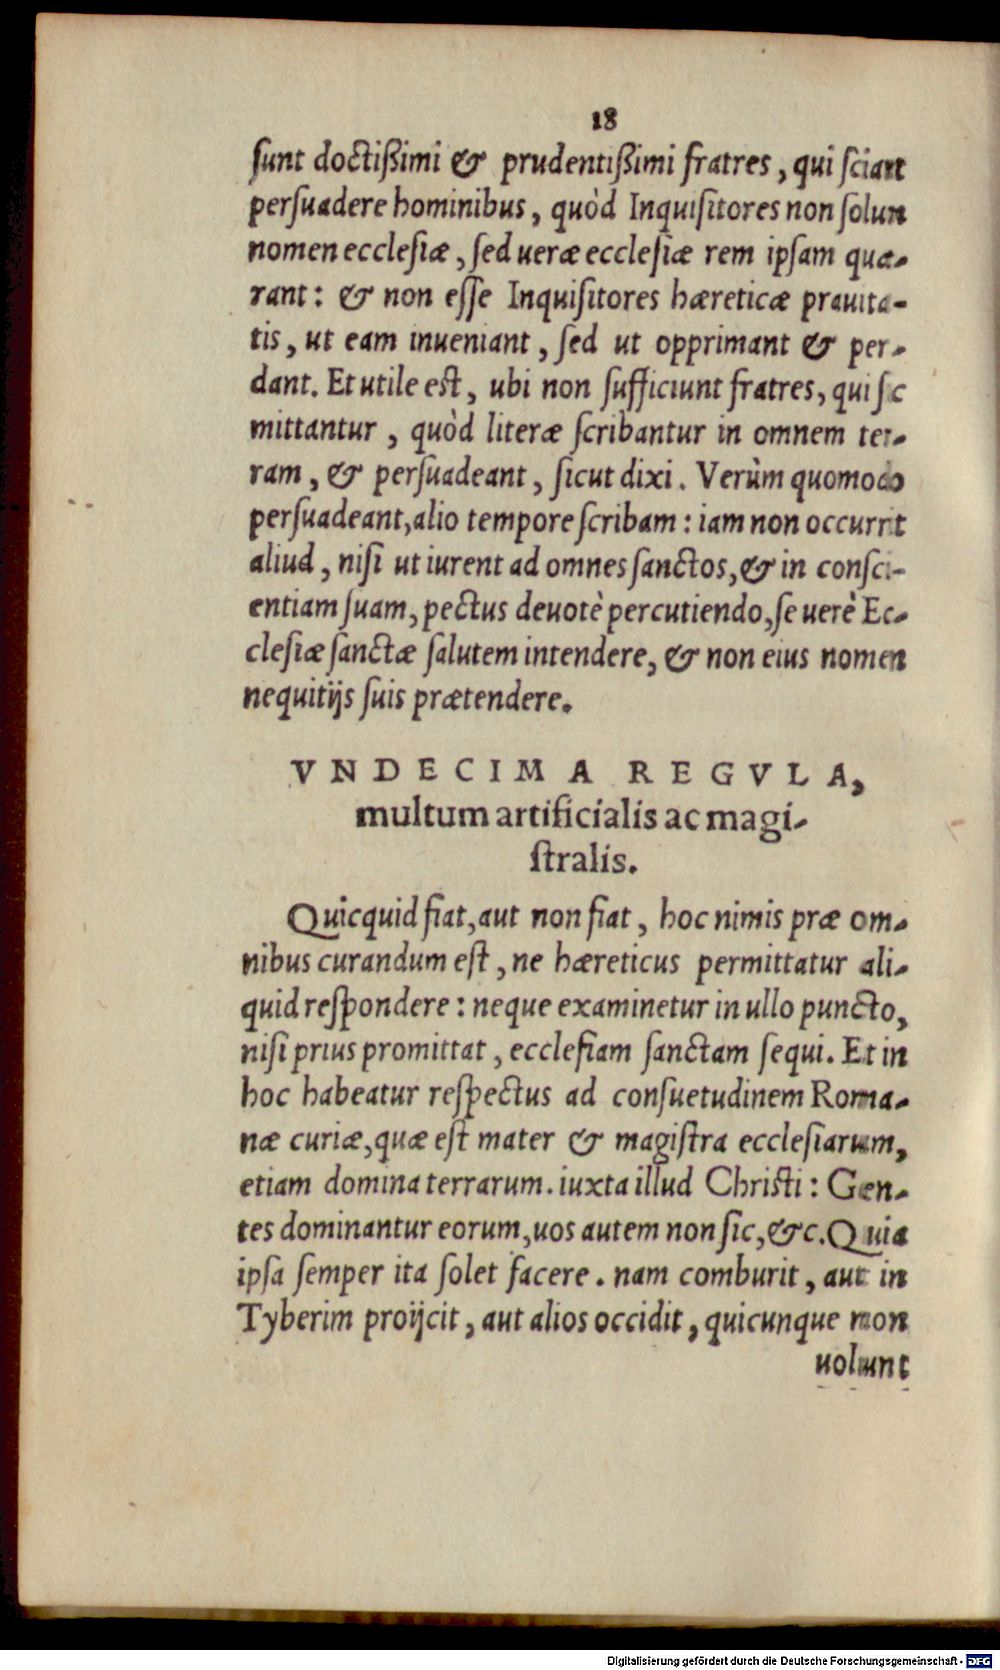 18
sunt doctißimi & prudentißimi fratres, qui sciant
persuadere hominibus, quòd Inquisitores non solun
nomen ecclesiæ, sed veræ ecclesiæ rem ipsam quæ-
rant: & non esse Inquisitores hæreticæ prauita-
tis, ut eam inueniant, sed ut opprimant & per-
dant. Et utile est, ubi non sufficiunt fratres, qui sic
mittantur, quòd literæ scribantur in omnem ter-
ram, & persuadeant, sicut dixi. Verùm quomodo
persuadeant, alio tempore scribam: iam non occurrit
aliud, nisi ut iurent ad omnes sanctos, & in consci-
entiam suam, pectus deuotè percutiendo, se uerè Ec-
clesiæ sanctæ salutem intendere, & non eius nomen
nequitijs suis prætendere.
VNDECIMA REGVLA,
multum artificialis ac magi-
stralis.
Quicquid fiat, aut non fiat, hoc nimis præ om-
nibus curandum est, ne hæreticus permittatur ali-
quid respondere: neque examinetur in ullo puncto,
nisi prius promittat, ecclesiam sanctam sequi. Et in
hoc habeatur respectus ad consuetudinem Roma-
næ curiæ, quæ est mater & magistra ecclesiarum,
etiam domina terrarum. iuxta illud Christi: Gen-
tes dominantur eorum, uos autem non sic, &c. Quia
ipsa semper ita solet facere. nam comburit, aut in
Tyberim proijcit, aut alios occidit, quicunque non
uolunt
Digitalisierung gefördert durch die Deutsche Forschungsgemeinschaft - DFG